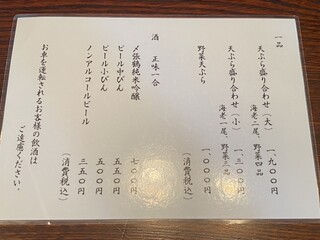 一品
天ぷら盛り合わせ（大） 一、九〇〇円
海老二尾、野菜四品
天ぷら盛り合わせ（小） 一、三〇〇円
海老一尾、野菜三品
野菜天ぷら 一、〇〇〇円
（消費税込）
酒 正味一合
〆張鶴純米吟醸 七〇〇円
ビール中びん 五五〇円
ビール小びん 五〇〇円
ノンアルコールビール 三五〇円
（消費税込）
お車を運転されるお客様の飲酒は
ご遠慮ください。